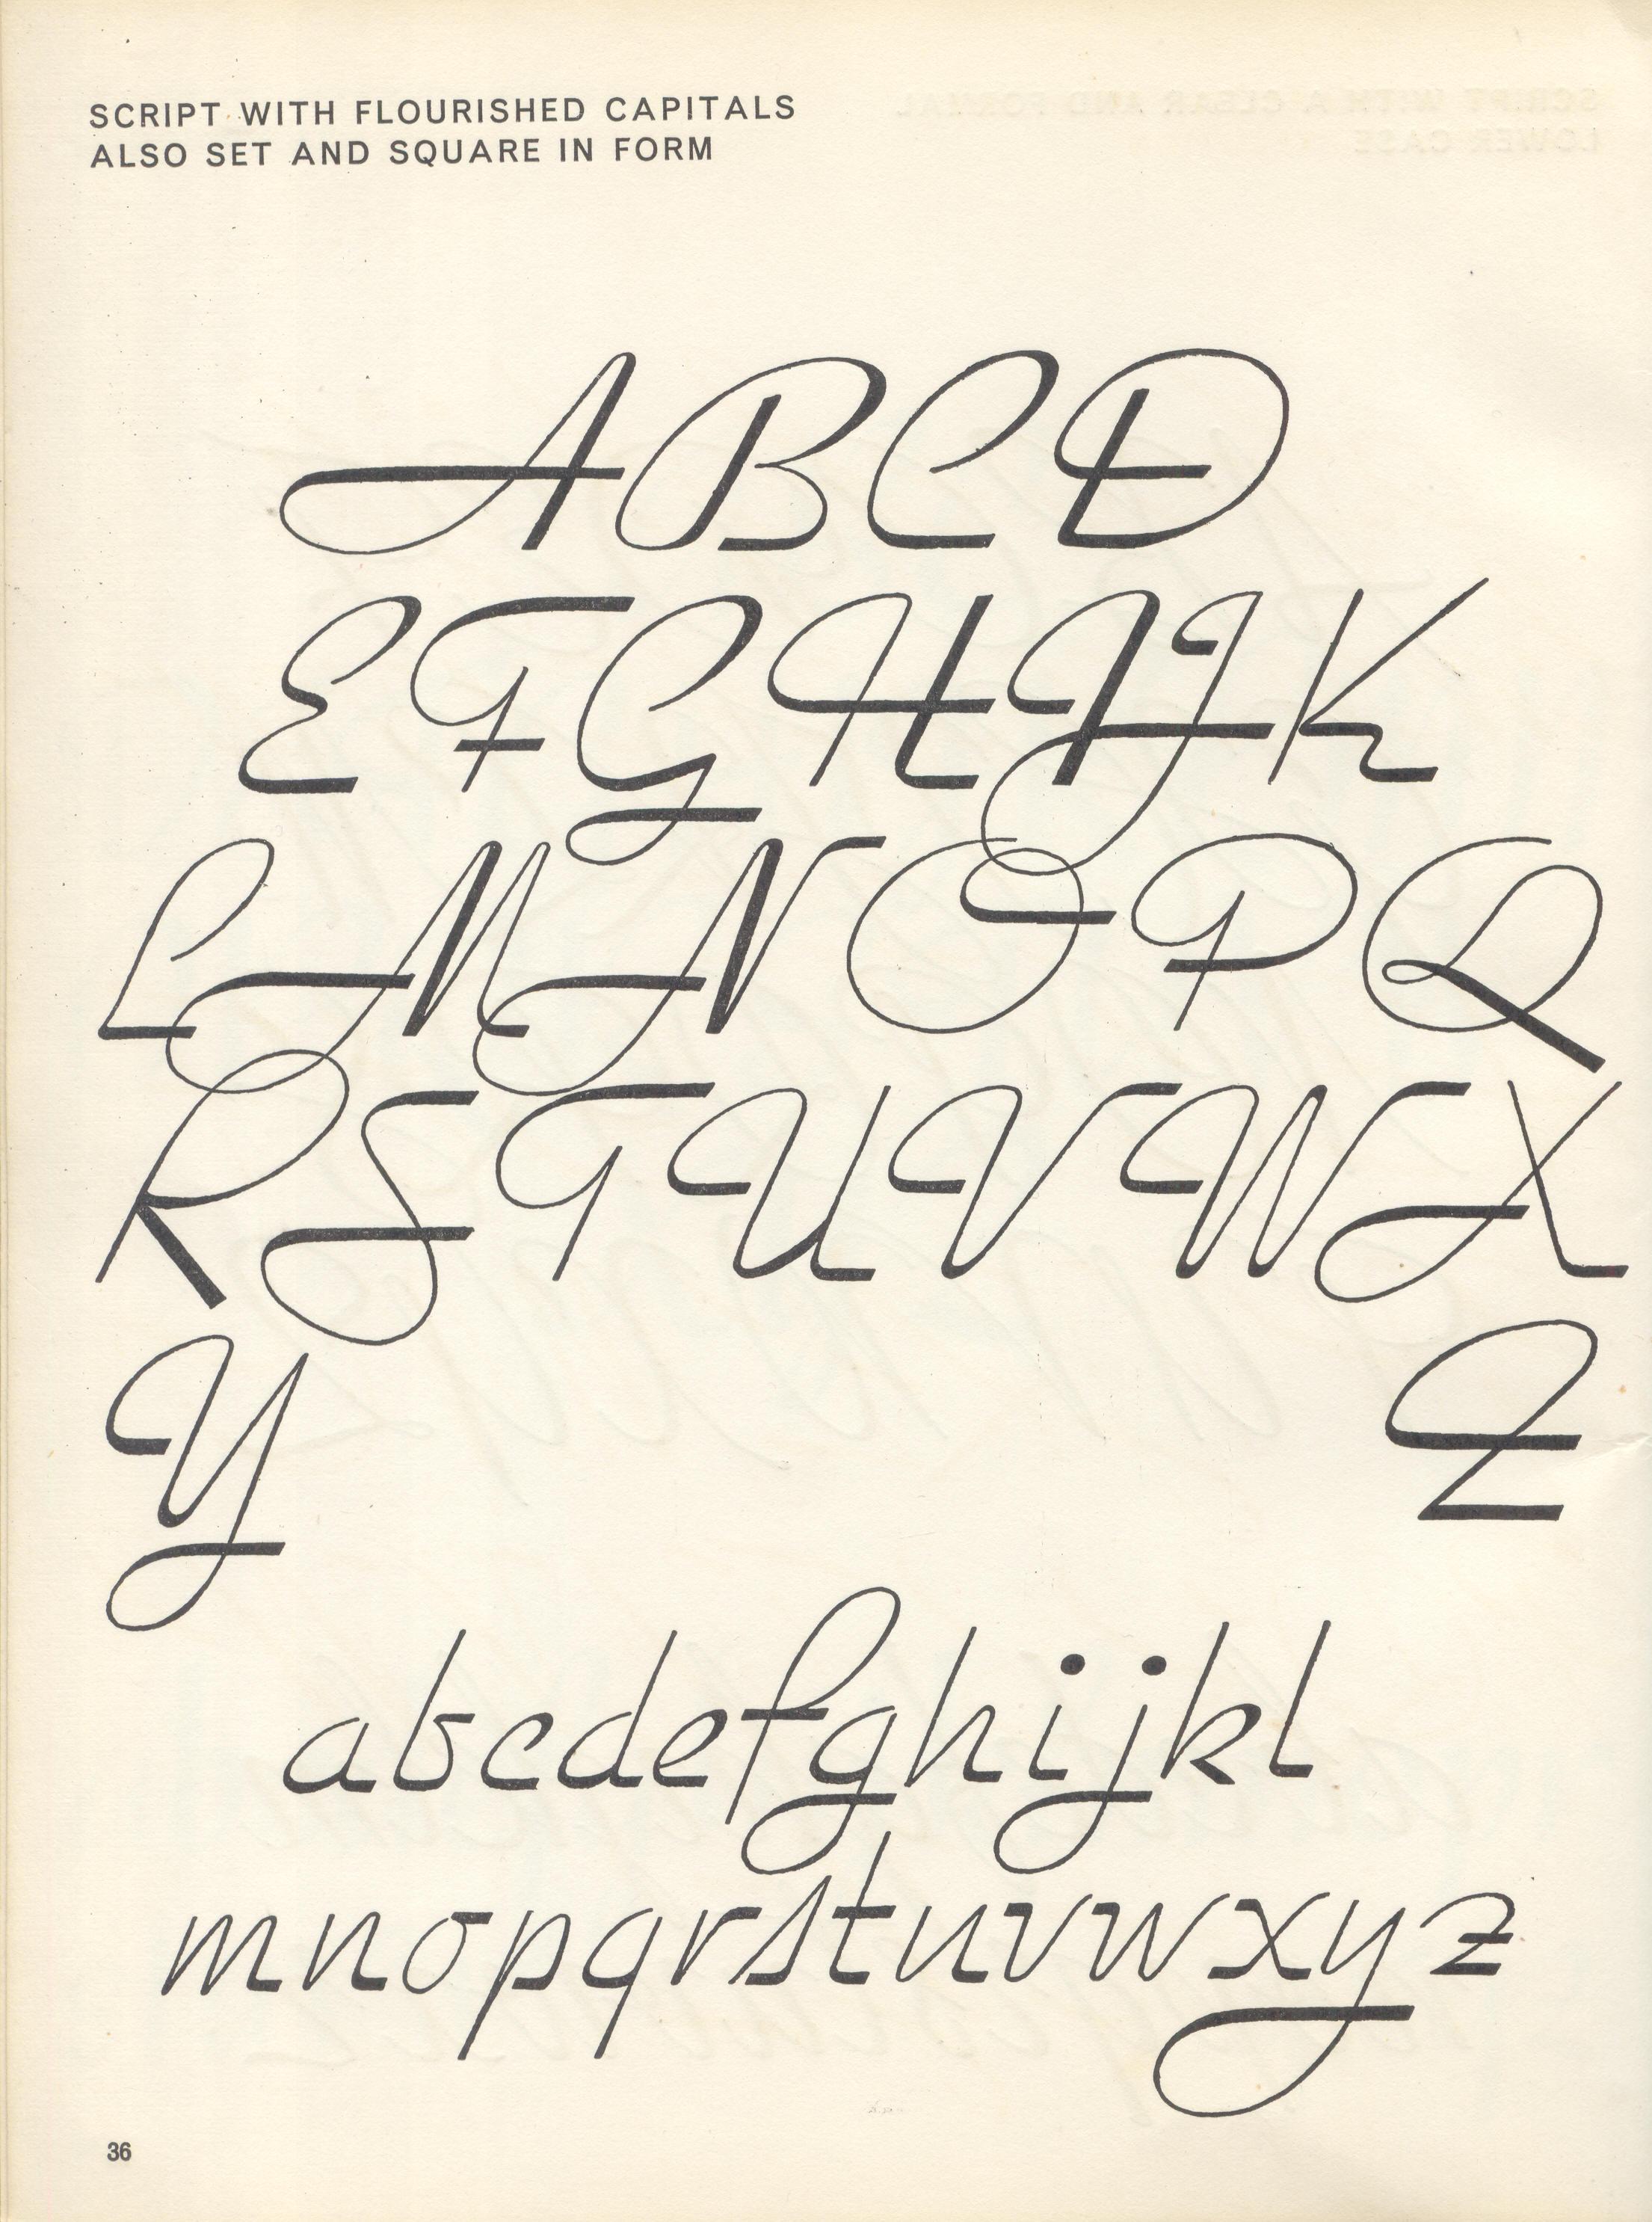 SCRIPT WITH FLOURISHED CAPITALS
ALSO SET AND SQUARE IN FORM
ABCD
EFGHIJK
LMNOPQ
RSTUVWX
Y Z
abcdefghijkl
mnopqrstuvwxyz
36